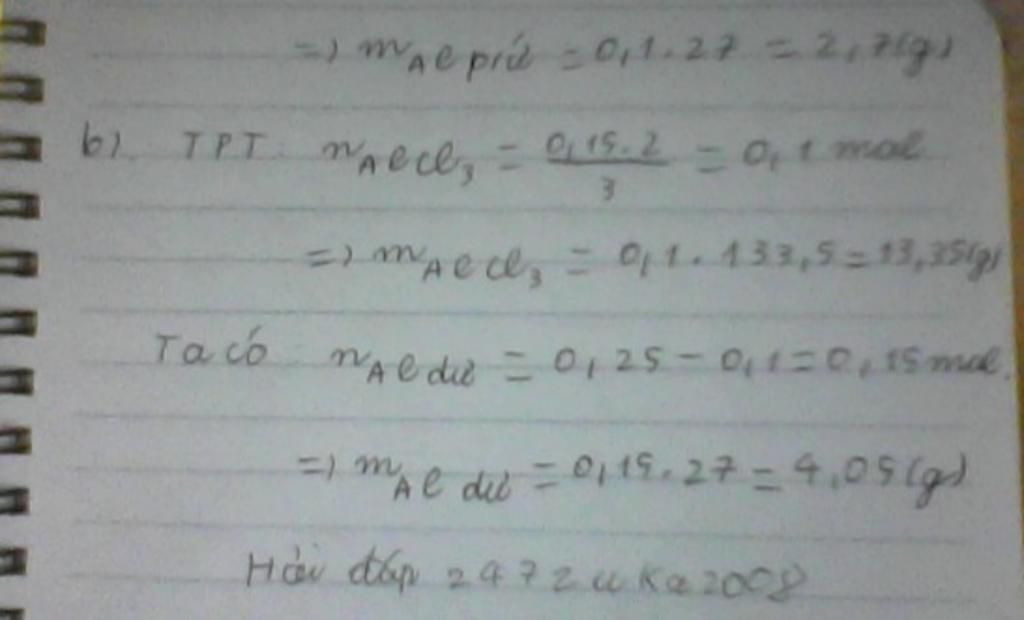 =) mAl pứ = 0,1.27 = 2,7(g)
b). TPT: nAlCl3 = 0,15.2/3 = 0,1 mol
=) mAlCl3 = 0,1.133,5 = 13,35(g)
Ta có nAl dư = 0,25 - 0,1 = 0,15 mol.
=) mAl dư = 0,15.27 = 4,05(g)
Hỏi đáp 247